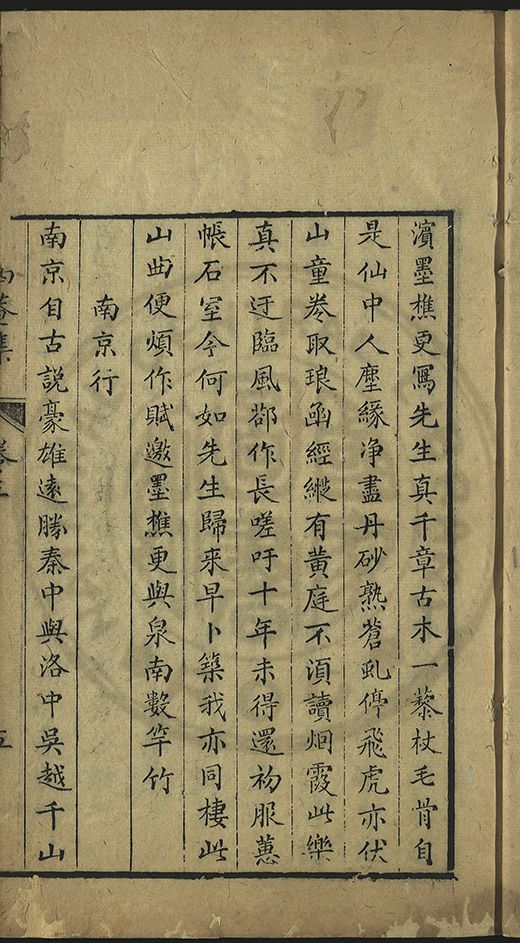 濵墨樵更寫先生真千章古木一藜杖毛骨自
是仙中人塵緣净盡丹砂熟蒼虬停飛虎亦伏
山童卷取琅凾經縱有黄庭不湏讀烟霞此樂
真不迂臨風鄀作長嗟吁十年未得還初服蕙
帳石室今何如先生歸來早卜築我亦同棲此
山曲便煩作賦邀墨樵更與泉南數竿竹
南京行
南京自古説豪雄遠勝秦中與洛中吳越千山